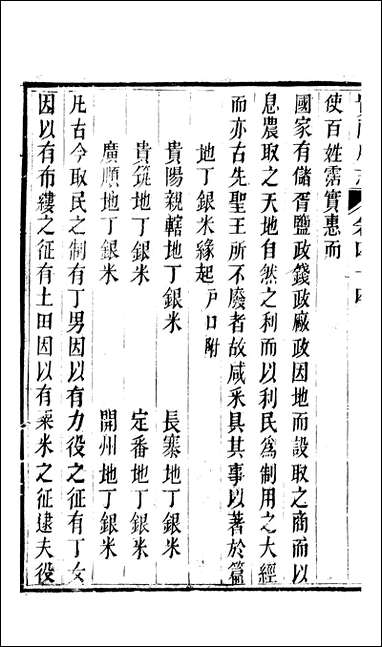 卷四十四
使百姓霑實惠而
國家有儲胥鹽政錢政廠政因地而設取之商而以
息農取之天地自然之利而以利民為制用之大經
而亦古先聖王所不廢者故咸采具其事以著於篇
地丁銀米緣起戶口附
貴陽親轄地丁銀米 長寨地丁銀米
貴筑地丁銀米 定番地丁銀米
廣順地丁銀米 開州地丁銀米
凡古今取民之制有丁男因以有力役之征有丁女
因以有布縷之征有土田因以有粟米之征逮夫役